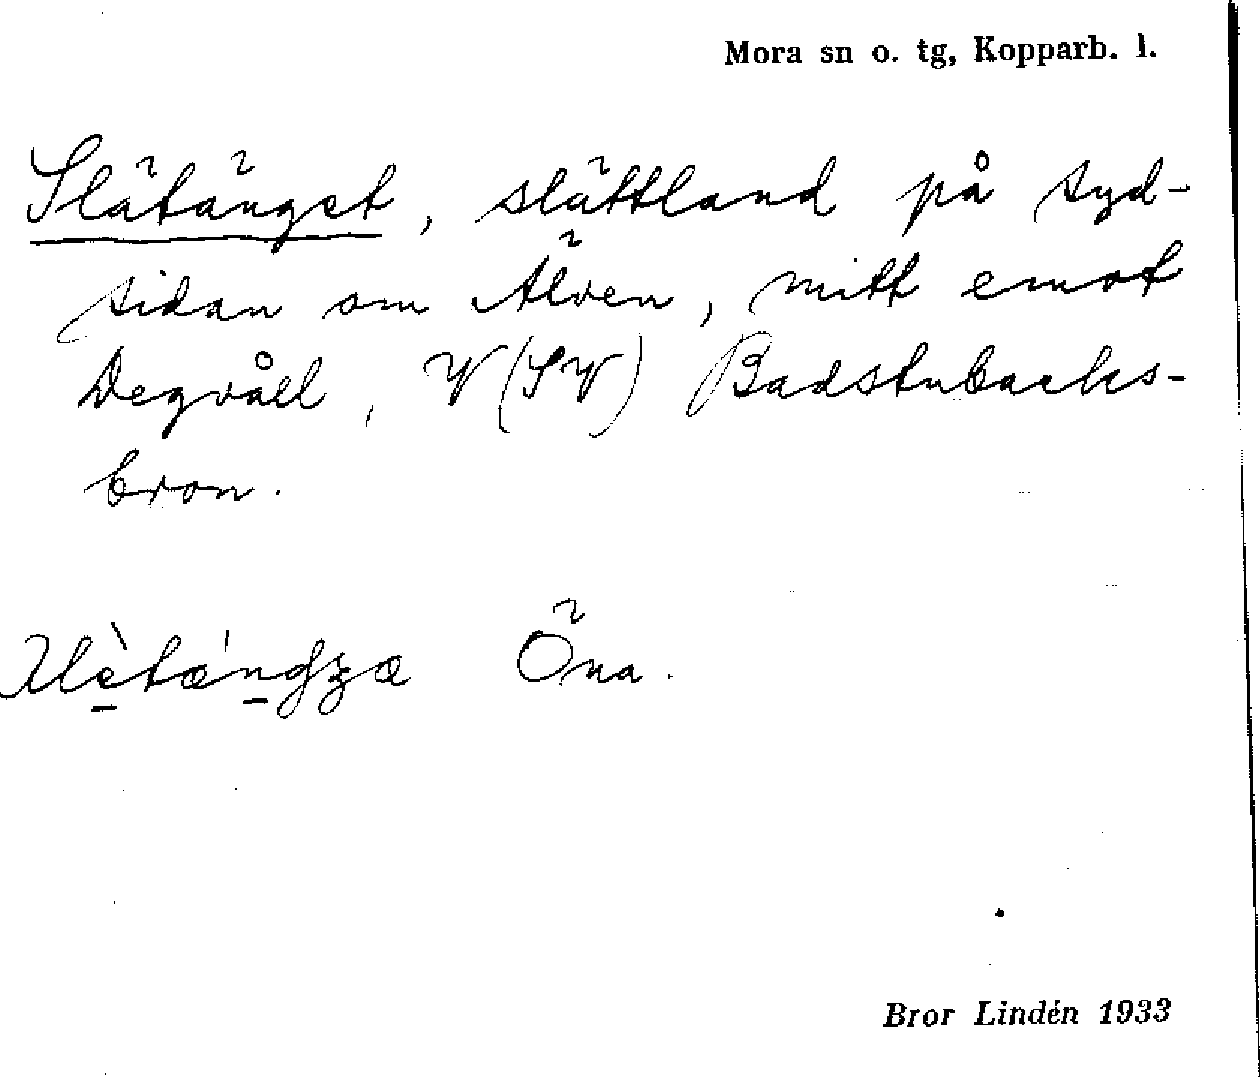 Mora sn o. tg, Kopparb. l.
Slätänget, slättland på syd-
sidan om Älven, mitt emot
Degvåll, V (SV) Badstubacks-
bron.
Öna.
Bror Lindén 1933